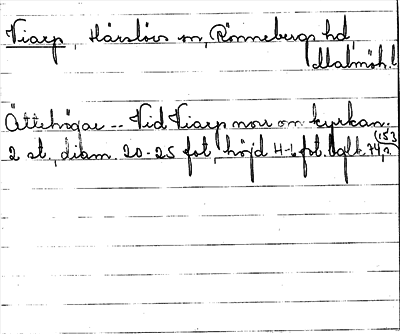 Viarp, Härslövs sn, Rönnebergs hd,
Malmöh. l
Ättehögar -- Vid Viarp norr om kyrkan.
2 st., diam. 20-25 fot, höjd 4-6 fot.
(153